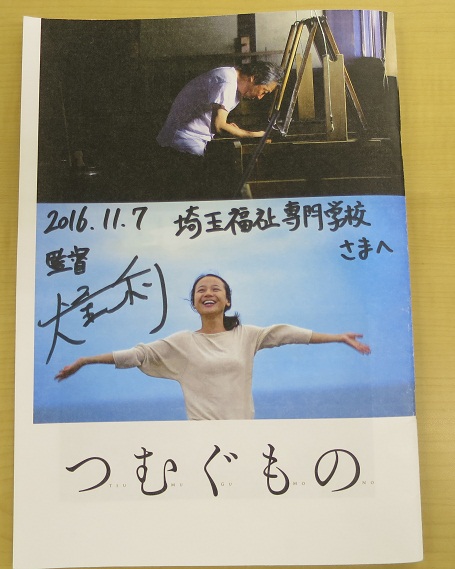 2016.11.7 埼玉福祉専門学校
さまへ
監督
つむぐもの
TSU MU GU MO NO